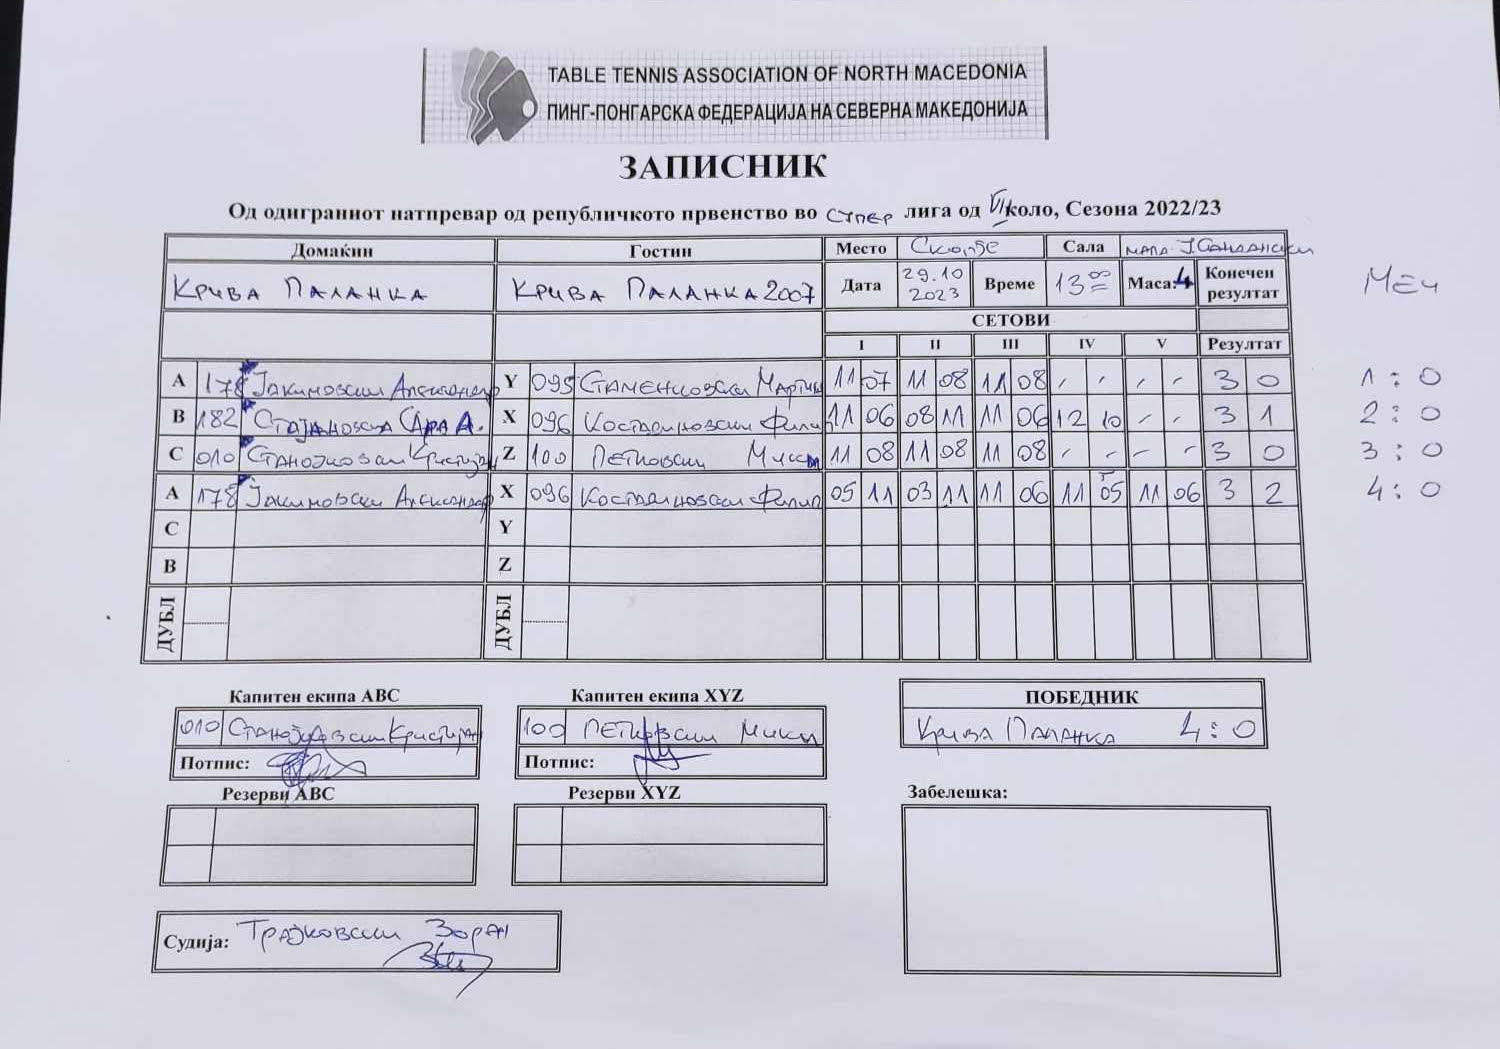 TABLE TENNIS ASSOCIATION OF NORTH MACEDONIA
ПИНГ-ПОНГАРСКА ФЕДЕРАЦИЈА НА СЕВЕРНА МАКЕДОНИЈА
ЗАПИСНИК
Од одиграниот натпревар од републичкото првенство во СУПЕР лига од VI коло, Сезона 2022/23
Домаќин Гостин Место Скопје Сала
КРИВА ПАЛАНКА КРИВА ПАЛАНКА 2007 Дата 29.10 2023 Време 13 00 Маса: 4 Конечен резултат МЕЧ
СЕТОВИ
I II III IV V Резултат
A 178 Јакимовски Александар Y 095 Стаменковски Мартин 11 07 11 08 11 08 - - - - 3 0 1 : 0
B 182 X 096 Костадиновски Филип 11 06 08 11 11 06 12 10 - - 3 1 2 : 0
C 010 Станојковски Кристијан Z 100 Петковски 11 08 11 08 11 08 - - - - 3 0 3 : 0
A 178 Јакимовски Александар X 096 Костадиновски Филип 05 11 03 11 11 06 11 05 11 06 3 2 4 : 0
C Y
B Z
ДУБЛ ДУБЛ
Капитен екипа ABC Капитен екипа XYZ ПОБЕДНИК
010 Станојковски Кристијан 100 Петковски Крива Паланка 4 : 0
Потпис: Потпис:
Резерви ABC Резерви XYZ Забелешка:
Судија: Трајковски Зоран